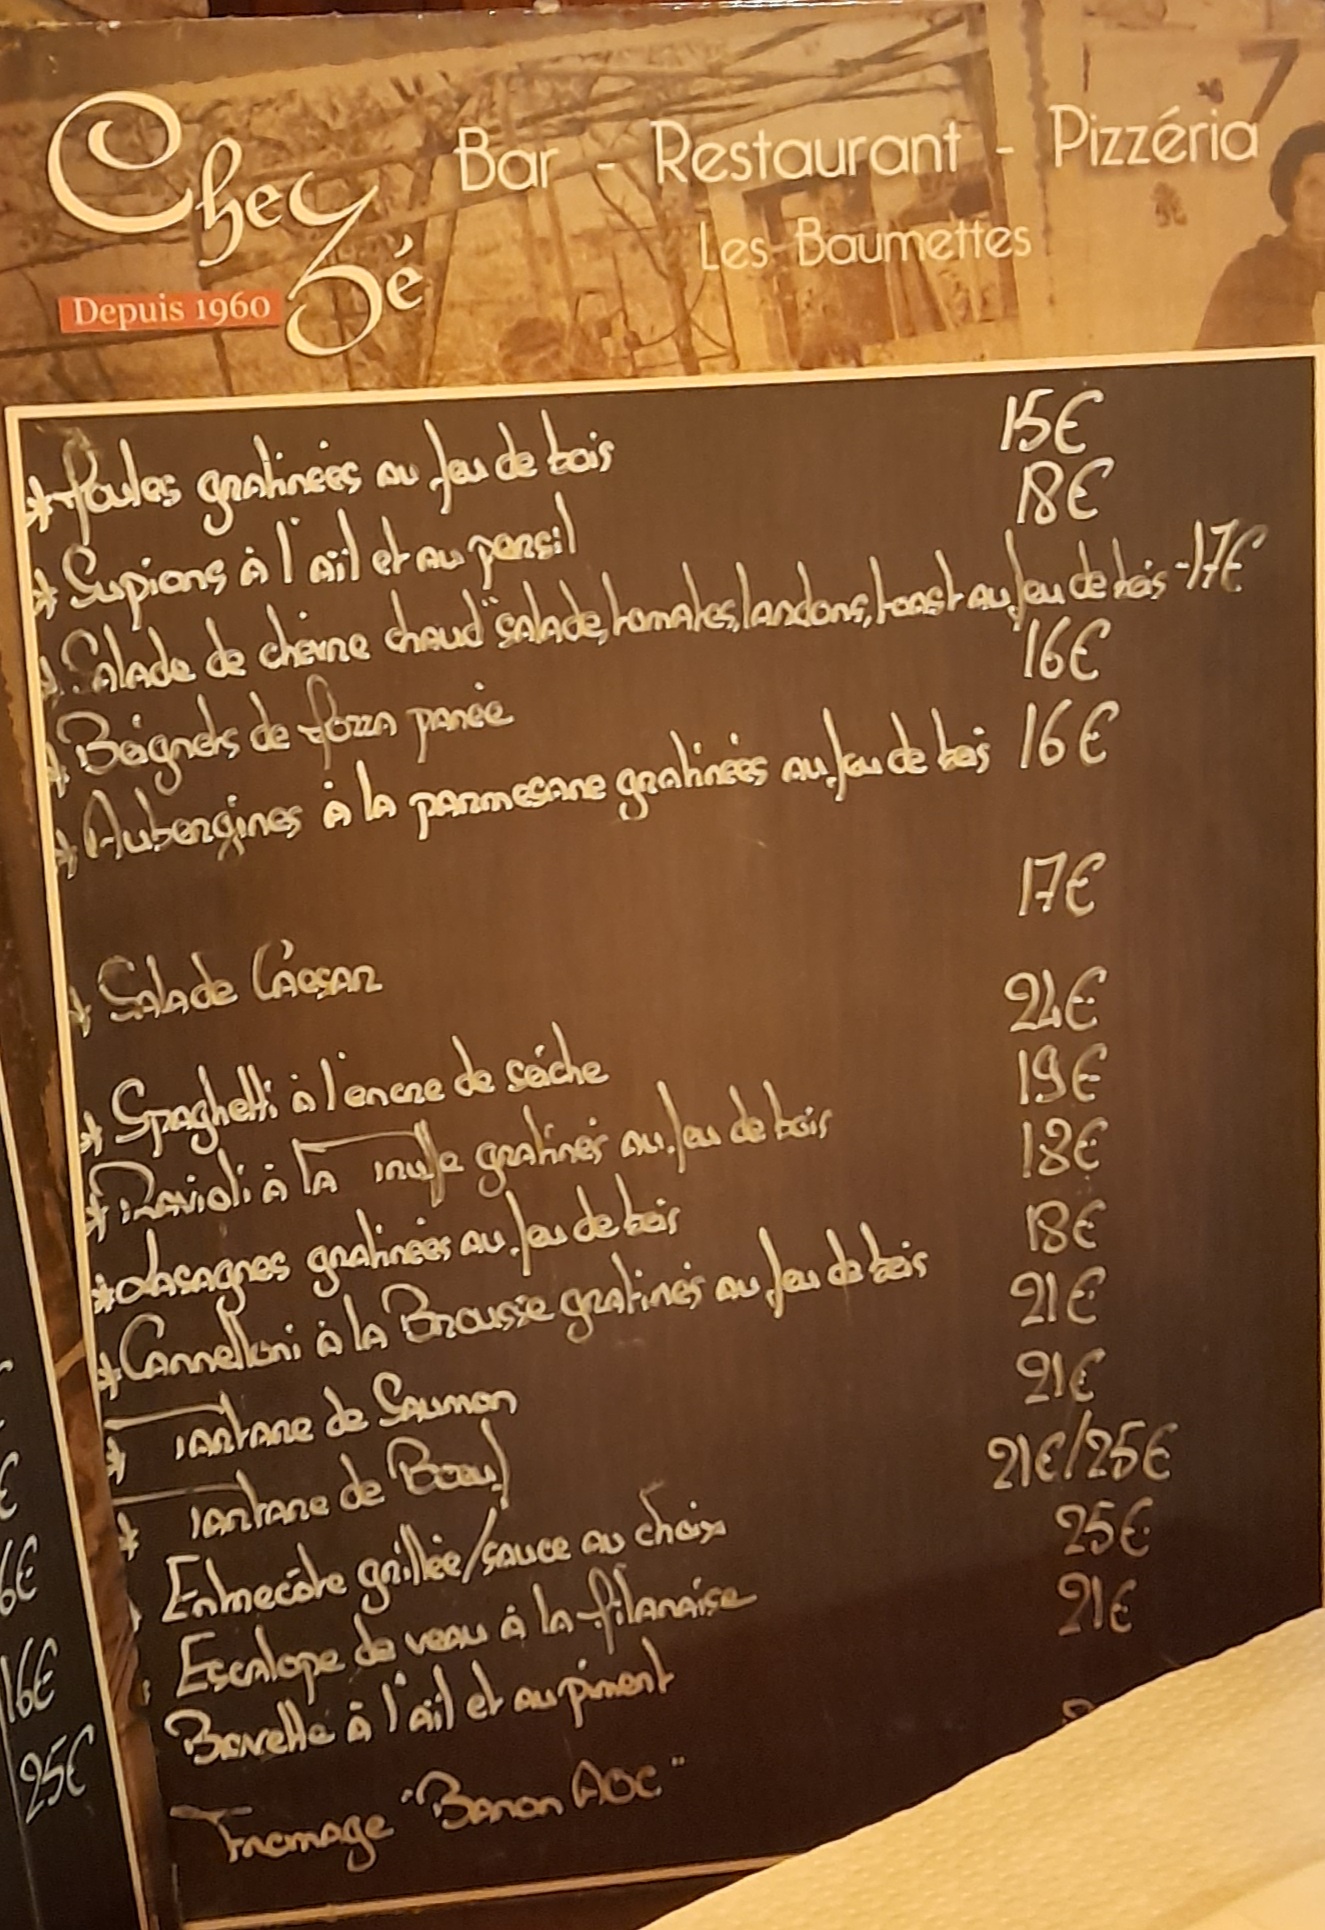 Chez Zé
Bar - Restaurant - Pizzéria
Les Baumettes
Depuis 1960
* Moules gratinées au feu de bois 15€
* Supions à l'ail et au persil 18€
* Salade de chèvre chaud "salade, tomates, lardons, toast au feu de bois - 17€
* Beignets de Mozza panée 16€
* Aubergines à la parmesane gratinées au feu de bois 16€
* Salade Cáesar 17€
* Spaghetti à l'encre de séiche 24€
* Ravioli à la Truffe gratinés au feu de bois 19€
* Lasagnes gratinées au feu de bois 18€
* Cannelloni à la Brousse gratinés au feu de bois 18€
* Tartare de Saumon 21€
* Tartare de Boeuf 21€
Entrecôte grillée/sauce au choix 21€/25€
Escalope de veau à la Milanaise 25€
Bavette à l'ail et au piment 21€
Fromage "Banon AOC"
6€
16€
25€